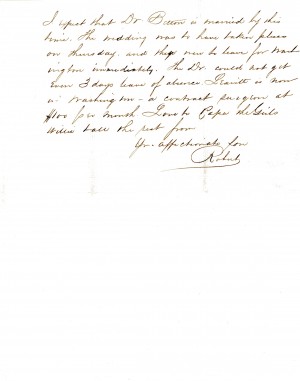 I expect that Dr Bitton is married by this
time. The wedding was to have taken place
on Thursday. and they were to leave for Wash
ington immediately. The Dr. could not get
even 3 days leave of absence Leavitt is now
in Washington - a contract surgeon at
$100 per month Love to Papa the Girls
Willie &
Yr. affectionate Son
Robert